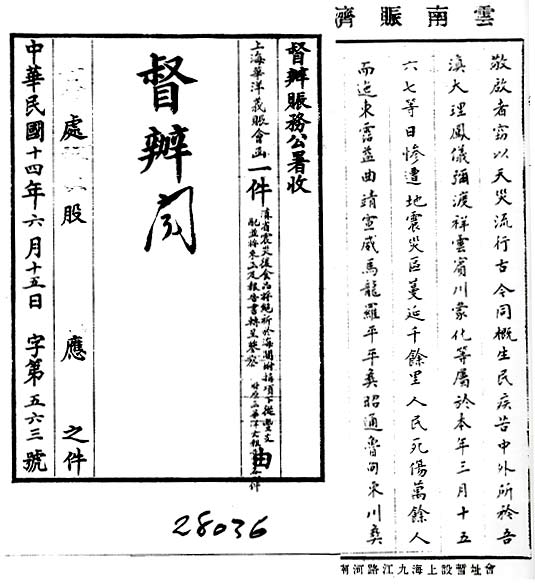 雲南賑濟
敬啟者竊以天災流行古今同概生民疾苦中外所矜吾
滇大理鳳儀彌渡祥雲賓川蒙化等屬於本年三月十五
六七等日慘遭地震災區蔓延千餘里人民死傷萬餘人
而迤東霑益曲靖宣威馬龍羅平平彝昭通魯甸東川彝
會址暫設上海九江路河南
督辦賑務公署收
上海華洋義賑會函一件
滇省震災後食品採絕祈於海關附捐項下從豐支
配並將來及報告書轉呈鑒察
由
督辦閱
處 股 應 之件
中華民國十四年六月十五日 字第五六三號
28036